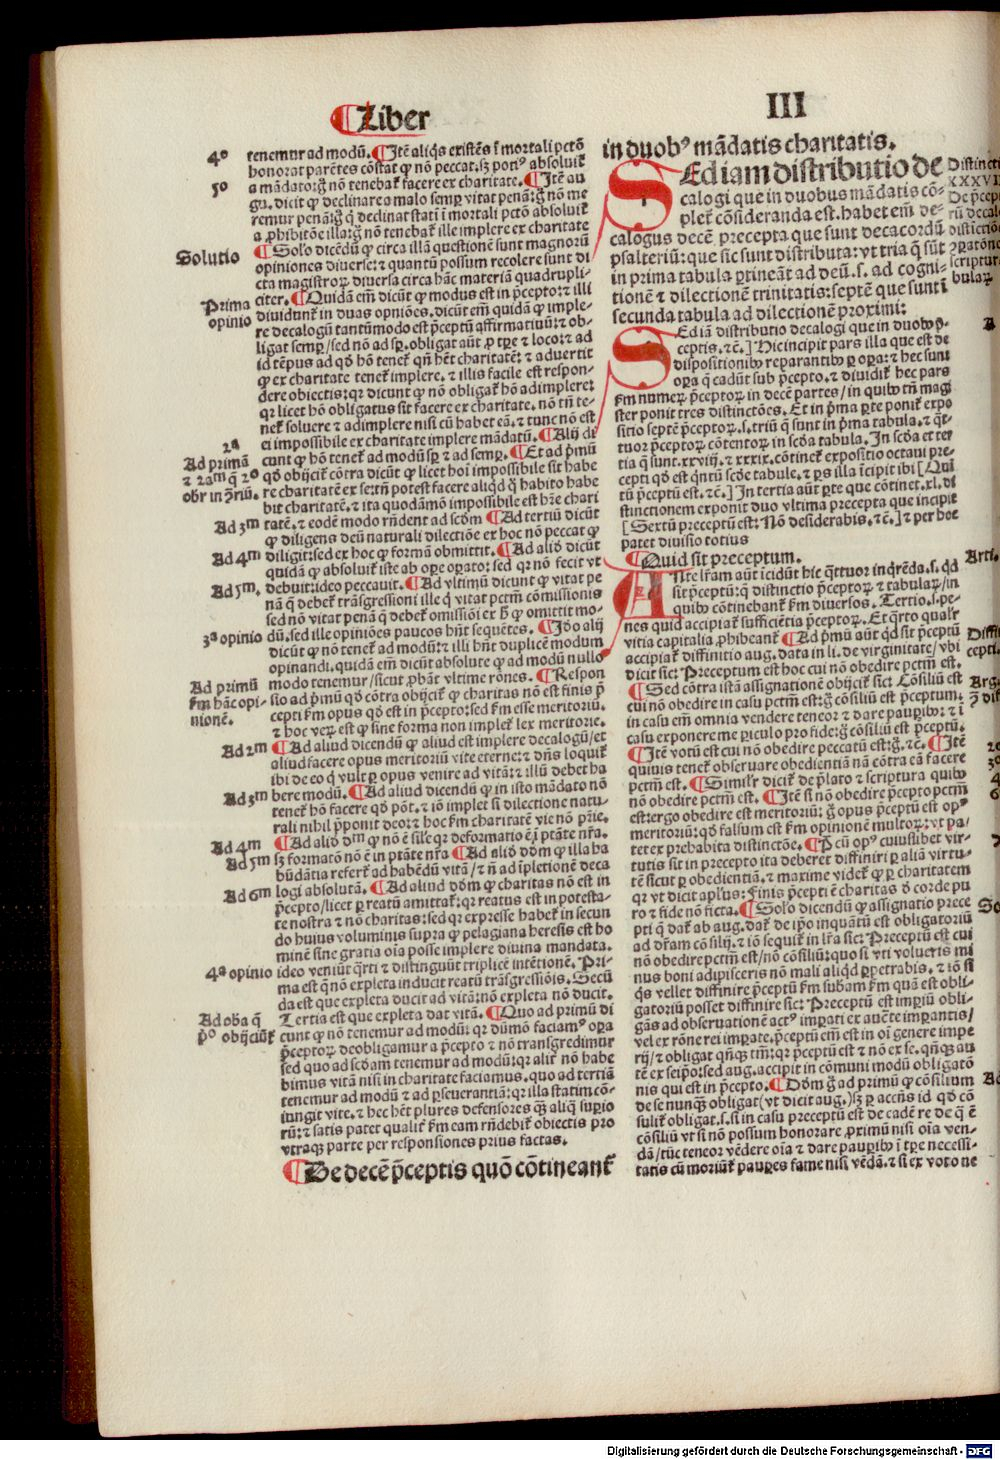 ¶Liber
III
4º
tenemur ad modū. ¶Itē aliq̄s existēs ī mortali pctō
honorat parētes cōstat ꝙ nō peccat. sꝫ potiꝰ absoluit̃
5º
a mādato: g̃ nō tenebat̃ facere ex charitate. ¶Itē au
gu. dicit ꝙ declinare a malo semꝑ vitat penā: g̃ nō me
remur penā: g̃ q̄ declinat stati ī mortali pctō absoluit̃
a ꝓhibitōe illa: g̃ nō tenebat̃ ille implere ex charitate
Solutio
¶Solo dicēdū ꝙ circa illā questionē sunt magnorū
opiniones diuerse: ⁊ quantū possum recolere sunt di
cta magistroꝝ diuersa circa hāc materiā quadrupli-
Prima
opinio
citer. ¶Quidā em̄ dicūt ꝙ modus est in p̄cepto: ⁊ illi
diuidunt̃ in duas opniōes. dicūt em̄ quidā ꝙ imple-
re decalogū tantūmodo est p̄ceptū affirmatiuū: ⁊ ob-
ligat semꝑ / sed nō ad sꝑ. obligat aūt ꝓ tꝑe ⁊ loco: ⁊ ad
id tēpus ad qd̄ hō tenet̃ qn̄ hēt charitatē: ⁊ aduertit
ꝙ ex charitate tenet̃ implere. ⁊ illis facile est respon-
dere obiectis: qꝛ dicunt ꝙ nō obligat̃ hō adimplere:
qꝛ licet hō obligatus sit facere ex charitate. nō tn̄ te-
net̃ soluere ⁊ adimplere nisi cū habet eā. ⁊ tunc nō est
2ª
ei impossibile ex charitate implere mādatū. ¶Alij di
Ad primā
⁊ 2am q̄ 2º
obr in p̄riū.
cunt ꝙ hō tenet̃ ad modū sꝑ ⁊ ad semꝑ. ¶Et ad p̄mū
qd̄ obijcit̃ cōtra dicūt ꝙ licet hoī impossibile sit habe
re charitatē ex se: tn̄ potest facere aliqd̄ q̄ habito habe
bit charitatē. ⁊ ita quodāmō impossibile est hr̄e chari
Ad 3m
tatē. ⁊ eodē modo rn̄dent ad scd̄m ¶Ad tertiū dicūt
ꝙ diligens deū naturali dilectiōe ex hoc nō peccat ꝙ
Ad 4m
diligit: sed ex hoc ꝙ formā obmittit. ¶Ad aliō dicūt
quidā ꝙ absoluit̃ iste ab oꝑe oꝑato: sed qꝛ nō fecit vt
Ad 5m.
debuit: ideo peccauit. ¶Ad vltimū dicunt ꝙ vitat pe
nā q̄ debet̃ trāsgressioni ille q̄ vitat pctm̄ cōmissionis
sed nō vitat penā q̄ debet̃ omissiōi ex h̄ ꝙ omittit mo-
3ª opinio
dū. sed ille opiniōes paucos hn̄t sequētes. ¶Ido alij
dicūt ꝙ nō tenet̃ ad modū: ⁊ illi hn̄t duplicē modum
opinandi. quidā em̄ dicūt absolute ꝙ ad modū nullo
Ad primū
ẜm hāc opi-
nionē.
modo tenemur / sicut ꝓbāt vltime rōnes. ¶Respon
sio ad p̄mū qd̄ cōtra obijcit̃ ꝙ charitas nō est finis p̄
cepti ẜm opus qd̄ est in p̄cepto: sed ẜm esse meritoriū.
⁊ hoc veꝝ est ꝙ sine forma non implet̃ lex meritorie.
Ad 2m
¶Ad aliud dicendū ꝙ aliud est implere decalogū / et
aliud facere opus meritoriū vite eterne: ⁊ dn̄s loquit̃
ibi de eo q̄ vult ꝑ opus venire ad vitā: ⁊ illū debet ha
Ad 3m
bere modū. ¶Ad aliud dicendū ꝙ in isto mādato nō
tenet̃ hō facere qd̄ pōt. ⁊ iō implet si dilectione natu-
rali nihil p̄ponit deo: ⁊ hoc ẜm charitatē vie nō pr̄ie.
Ad 4m
¶Ad aliō dm̄ ꝙ nō ē sil̃e qꝛ deformatio ē ī ptāte nr̄a.
Ad 5m
sꝫ formatō nō ē in ptāte nr̄a ¶Ad aliō dōm ꝙ illa ha
būdātia refert̃ ad habēdū vitā / ⁊ nō ad īpletionē deca
Ad 6m
logi absolutā. ¶Ad aliud dōm ꝙ charitas nō est in
p̄cepto / licet ꝑ reatū amittat̃: qꝛ reatus est in potesta-
te nostra ⁊ nō charitas: sed qꝛ expresse habet̃ in secun
do huius voluminis supra ꝙ pelagiana heresis est ho
minē sine gratia oīa posse implere diuina mandata.
4ª opinio
ideo veniūt q̄rti ⁊ distinguūt triplicē intētionē. Pri-
ma est q̄ nō expleta inducit reatū trāsgressiōis. Secū
da est que expleta ducit ad vitā: nō expleta nō ducit.
Ad oba q̄
p̄º obijciūt̃
Tertia est que expleta dat vitā. ¶Quo ad primū di
cunt ꝙ nō tenemur ad modū: qꝛ dūmō faciamꝰ oꝑa
p̄ceptoꝝ deobligamur a p̄cepto ⁊ nō transgredimur
sed quo ad scd̄am tenemur ad modū: qꝛ alit̃ nō habe
bimus vitā nisi in charitate faciamus. quo ad tertiā
tenemur ad modū ⁊ ad ꝑseuerantiā: qꝛ illa statim cō-
iungit vite. ⁊ hec hēt plures defensores q̄ȝ aliq̄ supio
rū: ⁊ satis patet qualit̃ ẜm eam rn̄debit̃ obiectis pro
vtraqꝫ parte per responsiones prius factas.
¶De decē p̄ceptis quō cōtineant̃
in duobꝰ mādatis charitatis.
Sed iam distributio de
calogi que in duobus mādatis cō-
plet̃ cōsideranda est. habet em̄ de-
calogus decē precepta que sunt decacordū
psalteriū: que sic sunt distributa: vt tria q̄ sūt
in prima tabula ꝑtineāt ad deū. s. ad cogni-
tionē ⁊ dilectionē trinitatis: septē que sunt ī
secunda tabula ad dilectionē proximi:
Distincti
XXXVII
De p̄cepti
rū decalo
distictiōe
⁊ ꝑatōne
scriptura
bulaꝝ
Sed iā distributio decalogi que in duobꝰ p̄-
ceptis. ⁊c.] Hic incipit pars illa que est de
dispositionibꝰ reparantibꝰ ꝑ oꝑa: ⁊ hec sunt
oꝑa q̄ cadūt sub p̄cepto. ⁊ diuidit̃ hec pars
ẜm numeꝝ p̄ceptoꝝ in decē partes / in quibꝰ tn̄ magi
ster ponit tres distinctōes. Et in p̄ma ꝑte ponit̃ expo
sitio septē p̄ceptoꝝ. s. triū q̄ sunt in p̄ma tabula. ⁊ q̄t-
tuor p̄ceptoꝝ cōtentoꝝ in scd̄a tabula. In scd̄a et ter
tia q̄ sunt. xxviij. ⁊ xxxix. cōtinet̃ expositio octaui pre-
cepti qd̄ est q̄ntū scd̄e tabule. ⁊ ꝑs illa īcipit ibi [Qui
tū p̄ceptū est. ⁊c.] In tertia aūt ꝑte que cōtinet. xl. di
stinctionem exponit duo vltima precepta que incipit
[Sextū preceptū est: Nō desiderabis. ⁊c.] ⁊ per hoc
patet diuisio totius
¶Quid sit preceptum.
Arti.
Ante lr̄am aūt īcidūt hic q̄ttuor inq̄rēda. s. qd̄
sit p̄ceptū: q̄ distinctio p̄ceptoꝝ ⁊ tabulaꝝ / in
quibꝰ cōtinebant̃ ẜm diuersos. Tertio. s. pe-
nes quid accipiat̃ sufficiētia p̄ceptoꝝ. Et q̄rto qualr̄
vitia capitalia ꝓhibeant̃ ¶Ad p̄mū aūt qd̄ sit p̄ceptū
Diffi
cepti.
accipiat̃ diffinitio aug. data in li. de virginitate / vbi
dicit sic: Preceptum est hoc cui nō obedire pctm̄ est.
Arg.
¶Sed cōtra istā assignationē obijcit̃ sic: Cōsiliū est
cui nō obedire in casu pctm̄ est: g̃ cōsiliū est p̄ceptum.
in casu em̄ omnia vendere teneor ⁊ dare pauꝑibꝰ: ⁊ ī
casu exponere me ꝑiculo pro fide: g̃ cōsiliū est p̄ceptū.
2º
¶Itē votū est cui nō obedire peccatū est: g̃. ⁊c. ¶Itē
3º
quiuis tenet̃ obseruare obedientiā nā cōtra eā facere
4
pctm̄ est. ¶Similr̄ dicit̃ de p̄lato ⁊ scriptura quibꝰ
6
nō obedire pctm̄ est. ¶Itē si nō obedire p̄cepto pctm̄
est: ergo obedire est meritoriū: g̃ opus p̄ceptū est opꝰ
meritoriū: qd̄ falsum est ẜm opinionē multoꝝ: vt pa/
tet ex prehabita distinctōe. ¶Pcū opꝰ cuiuslibet vir-
tutis sit in precepto ita deberet diffiniri ꝑ aliā virtu-
tē sicut ꝑ obedientiā. ⁊ maxime videt̃ ꝙ ꝑ charitatem
qꝛ vt dicit aplus: Finis p̄cepti ē charitas d̄ corde pu
So
ro ⁊ fide nō ficta. ¶Solo dicendū ꝙ assignatio prece
pti q̄ dat̃ ab aug. dat̃ de ip̄o inquātū est obligatoriū
ad dr̄am cōsilij. ⁊ iō sequit̃ in lr̄a sic: Preceptū est cui
nō obedire pctm̄ est / nō cōsiliū: quo si vti volueris mi
nus boni adipisceris nō mali aliqd̄ ꝑpetrabis. ⁊ iō si
q̄s vellet diffinire p̄ceptū ẜm subam ẜm quā est obli-
gatoriū posset diffinire sic: Preceptū est imp̄iū obli-
gās ad obseruationē actꝰ impati ex aucte impantis /
vel ex rōne rei impate. p̄ceptū em̄ est in oī genere impe
rij / ⁊ obligat qn̄qꝫ tm̄: qꝛ p̄ceptū est ⁊ nō ex se. qn̄qꝫ au
tē ex seipo: sed aug. accipit in cōmuni modū obligatō
Ad
nis qui est in p̄cepto. ¶Dōm g̃ ad primū ꝙ cōsilium
de se nunqȝ obligat (vt dicit aug.) sꝫ ꝑ accn̄s id qd̄ cō
sulit̃ obligat. s. si in casu preceptū est de eadē re de q̄ ē
cōsiliū vt si nō possum honorare ꝓximū nisi oīa ven-
dā / tūc teneor vēdere oīa ⁊ dare pauꝑibꝰ ī tꝑe necessi-
tatis cū moriūt̃ pauꝑes fame nisi vēdā. ⁊ si ex voto ne
Digitalisierung gefördert durch die Deutsche Forschungsgemeinschaft - DFG